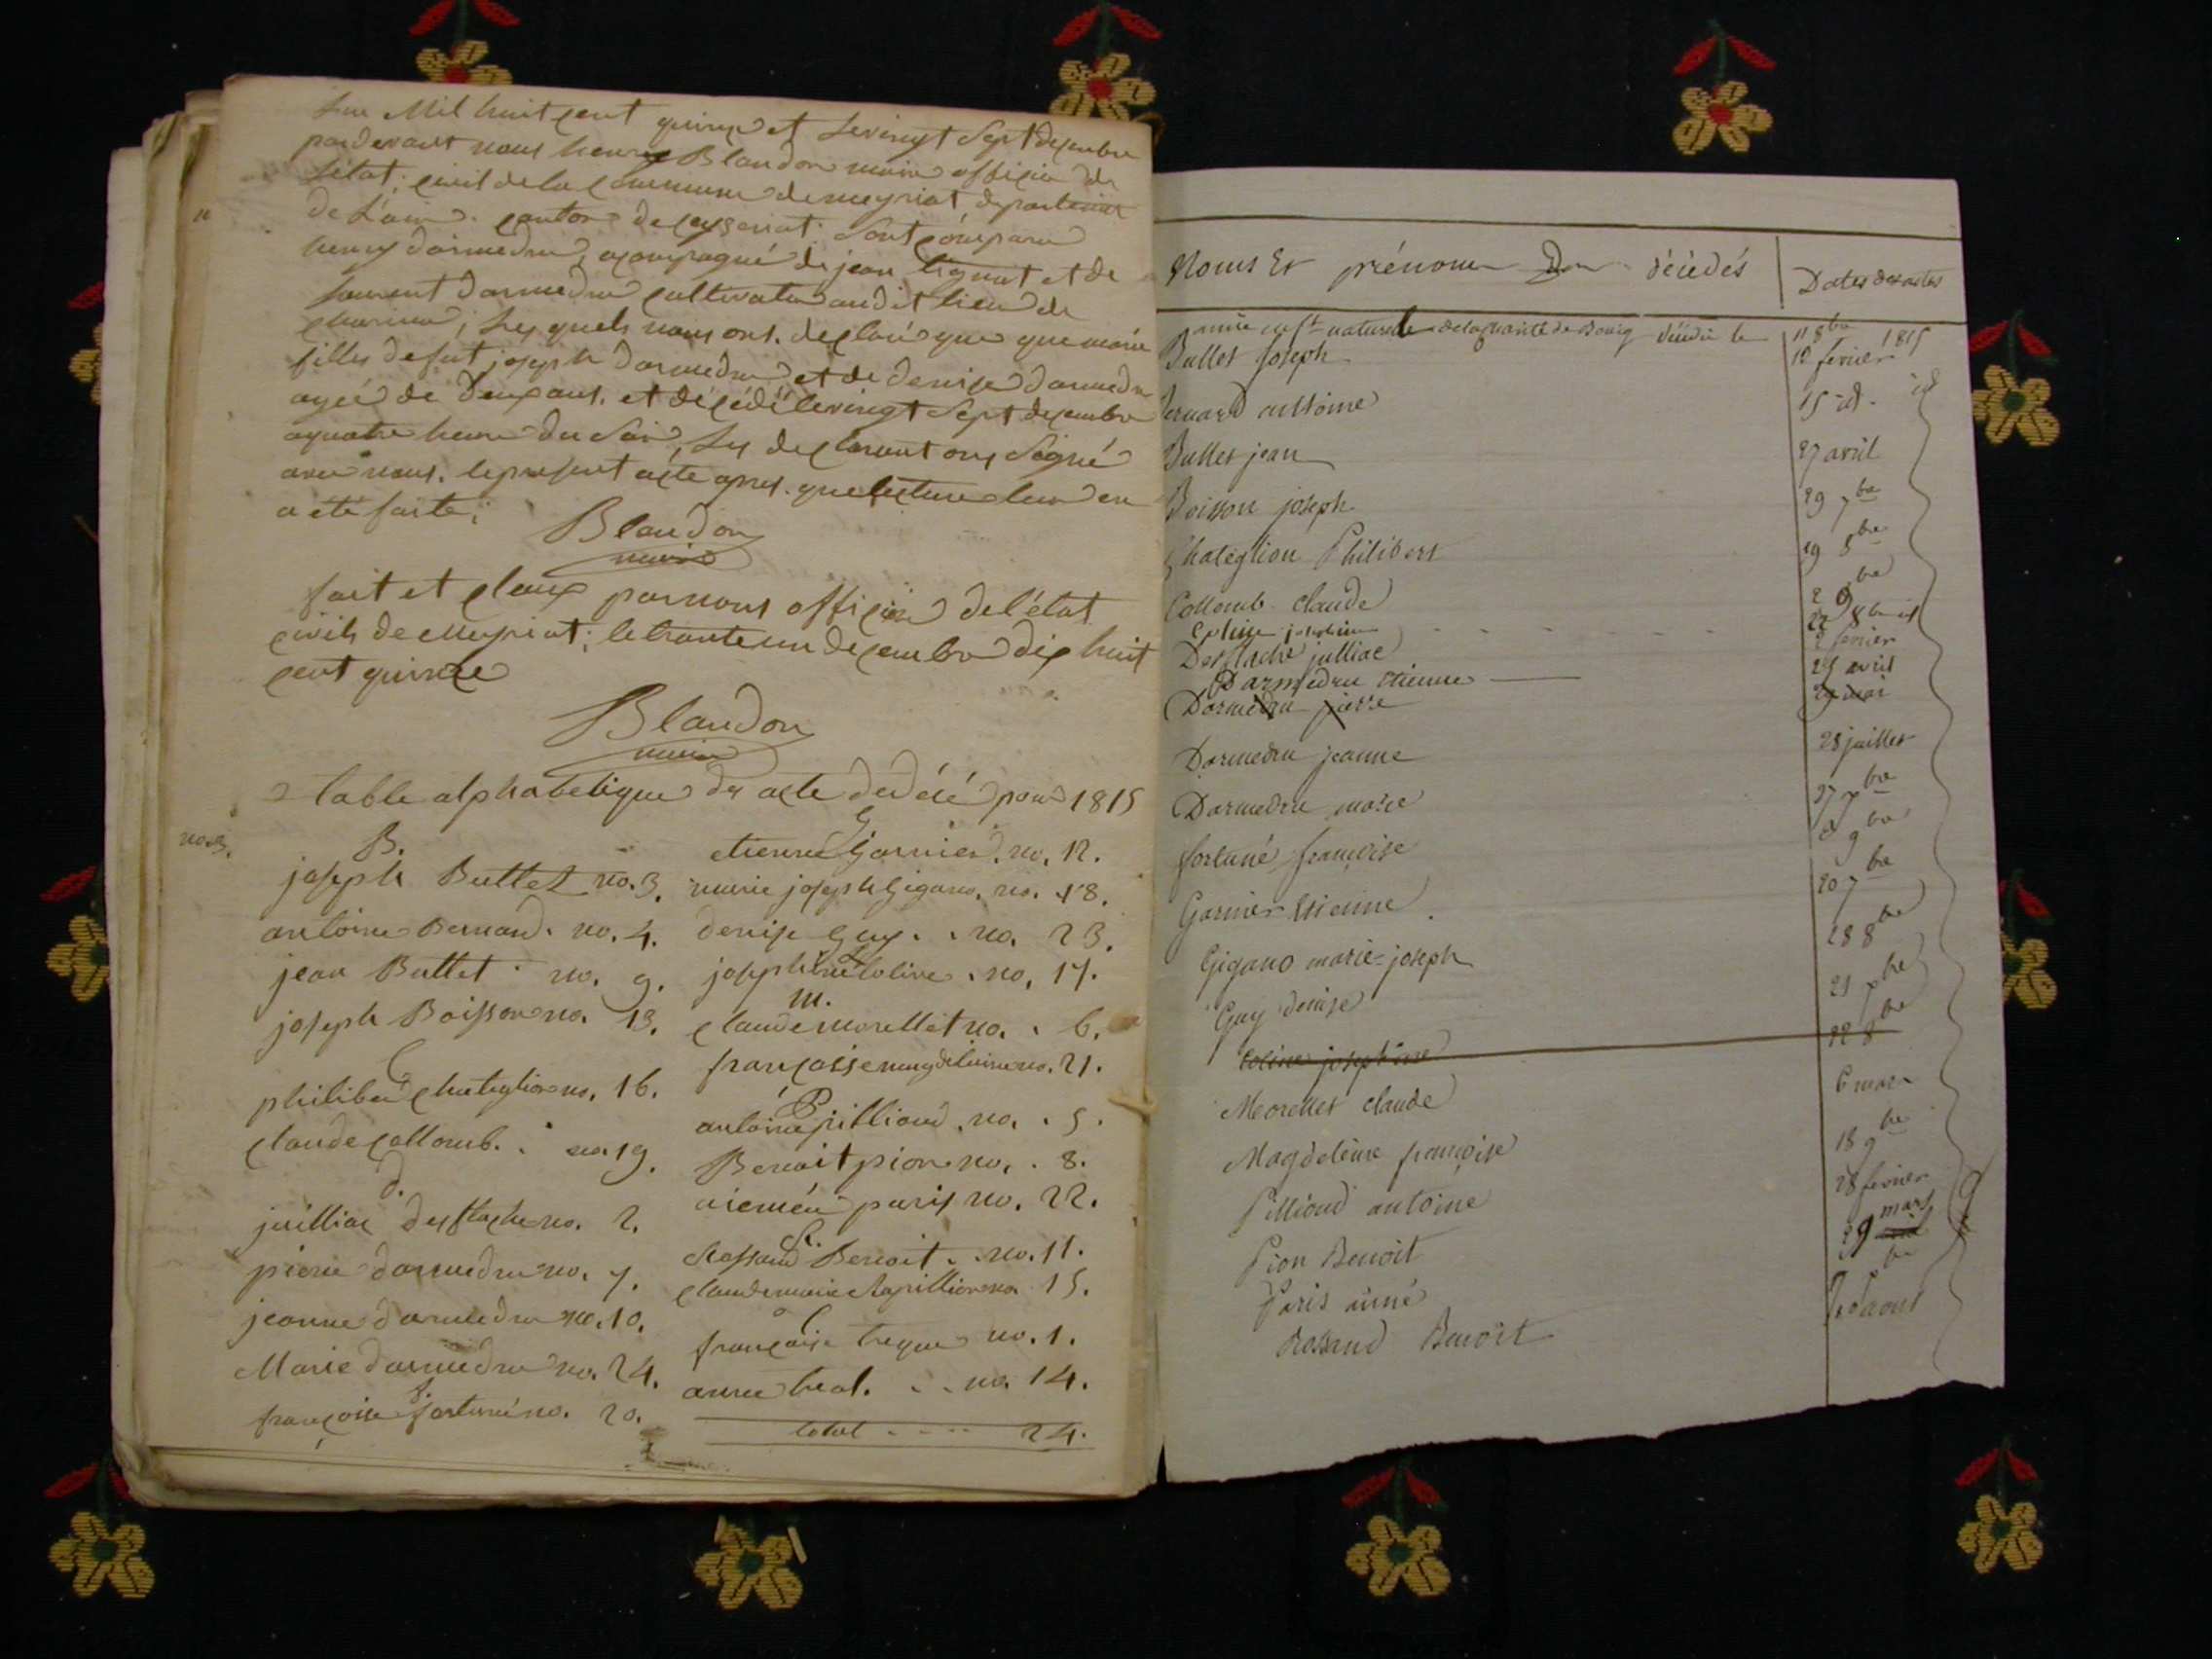 Lan Mil huit cent quinze et le vingt Sept decembre
pardevant nous henry Blandon maire officier de
l'etat civil de la commune de meyriat departement
de L'ain. canton de ceyseriat. sont comparu
henry darmedru, acompagné de jean et de
laurent darmedru cultivateur audit lieu de
charina, les quels nous ont declaré que que marie
fille de fut joseph darmedru et de denise darmedru
agée de deux ans, et décédé le vingt Sept decembre
a quatre heure du Soir, Les declarant ons Signé
avec nous. le present acte apres. que lecture leur en
a été faite;
Blandon
maire
fait et claux par nous officier de l'état
civils de Meyriat; le trante un decembre dix huit
cent quinze
Blandon
maire
table alphabetique des acte de décé pour 1815
no. 3.
B.
joseph Buttet no. 3.
antoine Bernard. no. 4.
jean Buttet. no. 9.
joseph Boisson no. 13.
C
philiber chateglion no. 16.
claude collomb. no. 19.
d.
juilliac desflache no. 2.
pierre darmedru no. 7.
jeanne darmedru no. 10.
Marie darmedru no. 24.
f.
françoise fortuné no. 20.
G
etienne Garnier. no. 12.
marie joseph Gigano. no. 18.
denise Guy. . no. 23.
L
josephine coline. no. 17.
m.
claude morellet no. . 6.
françoise magdeleine no. 21.
P
antoine pilliond. no. . 5.
Benoit pion no. . 8.
aiemée paris no. 22.
R.
Rossand Benoit . . no. 11.
claudemarie Rapillion no. 15.
t
françoise treque no. 1.
anne treal. . . no. 14.
total . . . . . 24.
Noms Et prénoms Des décédés Dates des actes
annie enft naturelle de la charité de Bourg décédée le 11 8bre 1815
Buttet Joseph 12 fevrier
Bernard antoine 15 id. id
Buttet jean 27 avril
Boisson joseph 29 7bre
Chateglion Philibert 19 8bre
Collomb claude 2 9bre
coline josephine 22 8bre id
Desflache julliac 2 fevrier
Darmedru etienne 25 avril
Darmedru pierre 29 mai
Darmedru jeanne 28 juillet
Darmedru marie 27 xbre
fortuné françoise 9bre
Garnier Etienne 20 7bre
Gigano marie-joseph 28 8bre
Guy denise 21 xbre
coline josephine 22 8bre
Morellet claude 6 mars
Magdeleine françoise 18 9bre
Pilliond antoine 28 fevrier
Pion Benoit 29 mars
Paris aimé xbre
Rossand Benoit aout